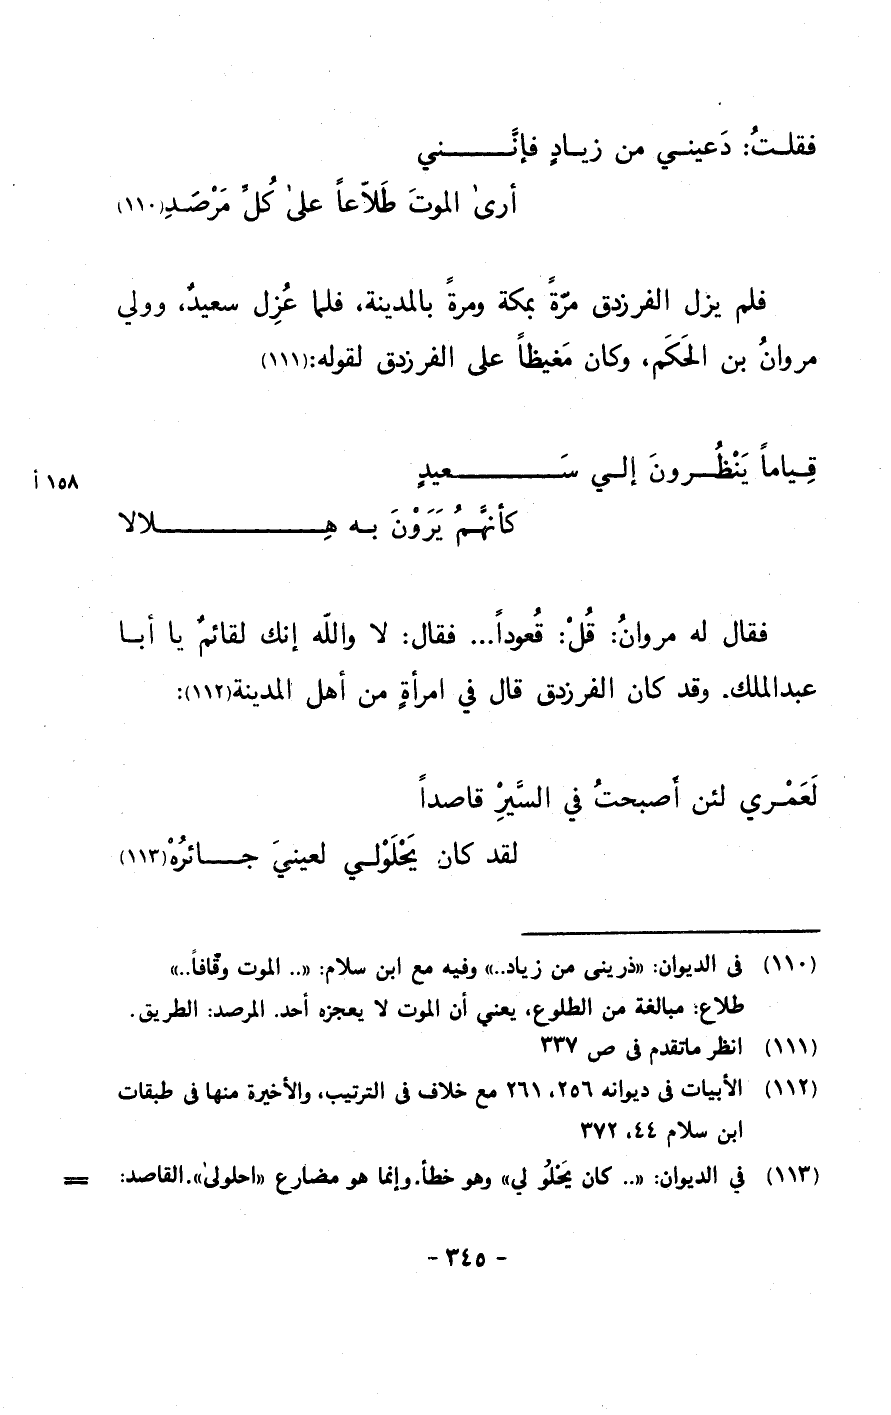 فقلتُ: دَعيني من زيادٍ فإنَّني
أرىٰ الموتَ طَلاّعاً علىٰ كُلِّ مَرْصَدِ(١١٠)
فلم يزل الفرزدق مرّةً بمكة ومرةً بالمدينة، فلما عُزِل سعيدٌ، وولي
مروانُ بن الحَكَم، وكان مَغيظاً على الفرزدق لقوله:(١١١)
قِياماً يَنْظُرونَ إلي سَعيدٍ
١٥٨ أ
كأنَّهمُ يَرَوْنَ به هِلالا
فقال له مروانُ: قُلْ: قُعوداً... فقال: لا واللّه إنك لقائمٌ يا أبا
عبدالملك. وقد كان الفرزدق قال في امرأةٍ من أهل المدينة(١١٢):
لَعَمْري لئن أَصبحتُ في السَّيْرِ قاصداً
لقد كان يَحْلَوْلي لعينيَ جائرُهْ(١١٣)
(١١٠) فى الديوان: «ذرينى من زياد..» وفيه مع ابن سلام: «.. الموت وقّافاً..»
طلاع: مبالغة من الطلوع، يعني أن الموت لا يعجزه أحد. المرصد: الطريق.
(١١١) انظر ماتقدم فى ص ٣٣٧
(١١٢) الأبيات فى ديوانه ٢٥٦، ٢٦١ مع خلاف فى الترتيب، والأخيرة منها فى طبقات
ابن سلام ٤٤، ٣٧٢
(١١٣) في الديوان: «.. كان يَحْلُو لي» وهو خطأ. وإنما هو مضارع «احلولىٰ». القاصد: =
- ٣٤٥ -